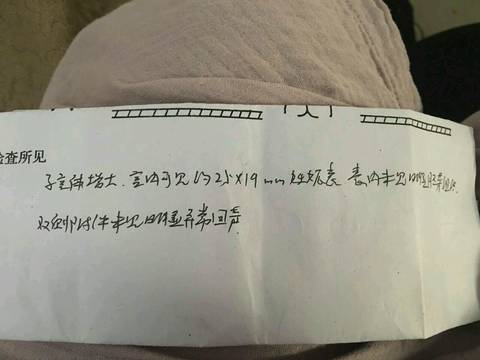 检查所见
子宫体增大.宫内可见约25×19mm妊娠囊 囊内未见明显胚芽
双侧附件未见明显异常回声